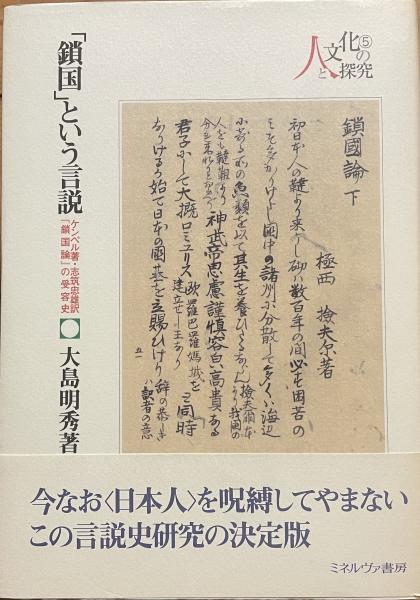 「鎖国」という言説
ケンペル著・志筑忠雄訳
『鎖国論』の受容史
大島明秀著
人と文化の探究⑤
鎖國論 下
極西 撿夫尓著
初日本人の韃より来りし砌ハ数百年の間必を困苦の
国中の諸州に分散して多くハ海辺
の魚類を以て其生を養ひ
神武帝思慮謹慎容皃高貴ある
君子にして大概ロミュリス 欧羅巴羅媽城を 建立せし王なり と同時
始て日本の國基を立賜ひけり
今なお〈日本人〉を呪縛してやまない
この言説史研究の決定版
ミネルヴァ書房